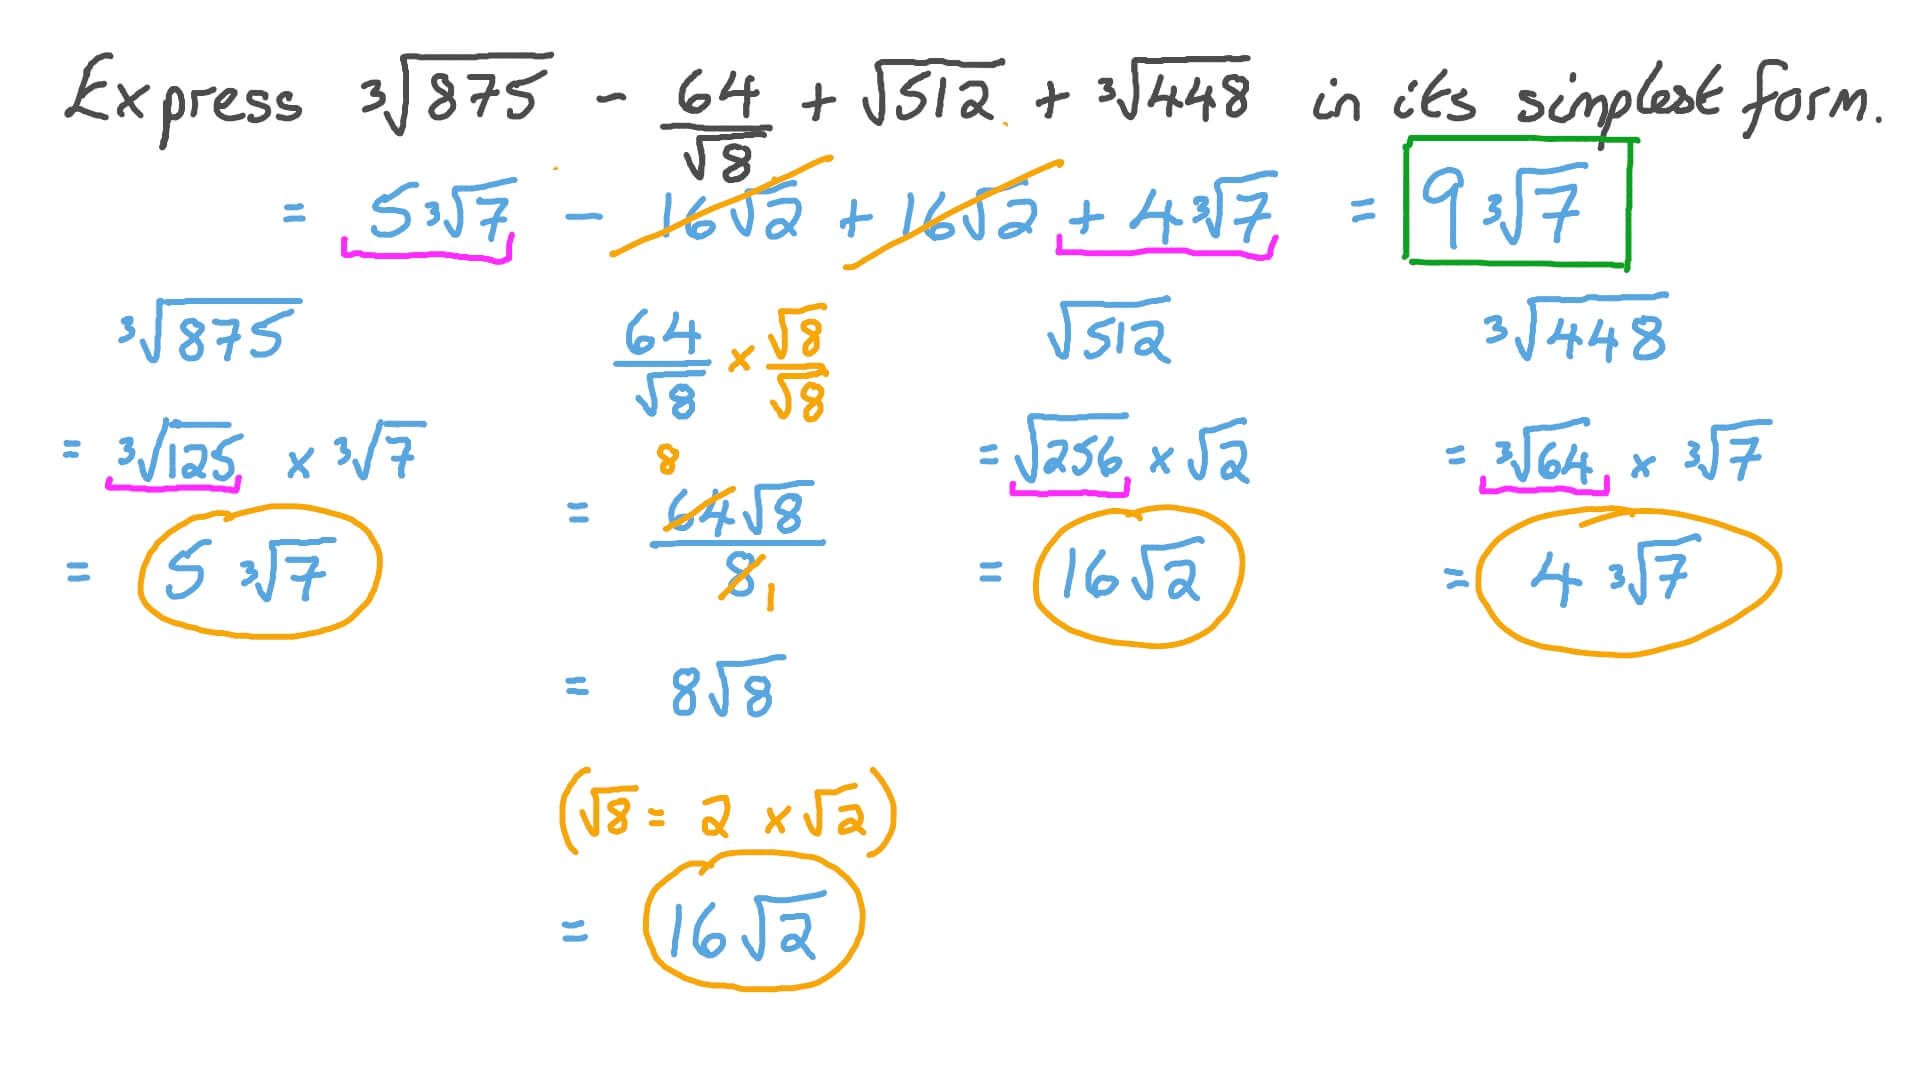 Express ³√875 - 64/√8 + √512 + ³√448 in its simplest form.
= 5 ³√7 - 16√2 + 16√2 + 4 ³√7 = 9 ³√7
³√875
= ³√125 × ³√7
= 5 ³√7
64/√8 × √8/√8
8
= 64√8/8 1
= 8√8
(√8 = 2 × √2)
= 16√2
√512
= √256 × √2
= 16√2
³√448
= ³√64 × ³√7
= 4 ³√7